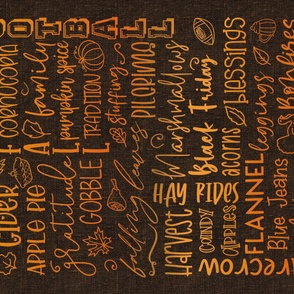 OOTBALL
CORNUCOPIA
family
pumpkin spice
TRADITION
stuffing
PILGRIMS
CIDER
APPLE PIE
gratitude
GOBBLE
falling leaves
Marshmallows
Black Friday
blessings
HAY RIDES
acorns
leggings
Bonfires
Harvest
CANDY
apples
FLANNEL
Blue Jeans
recrow